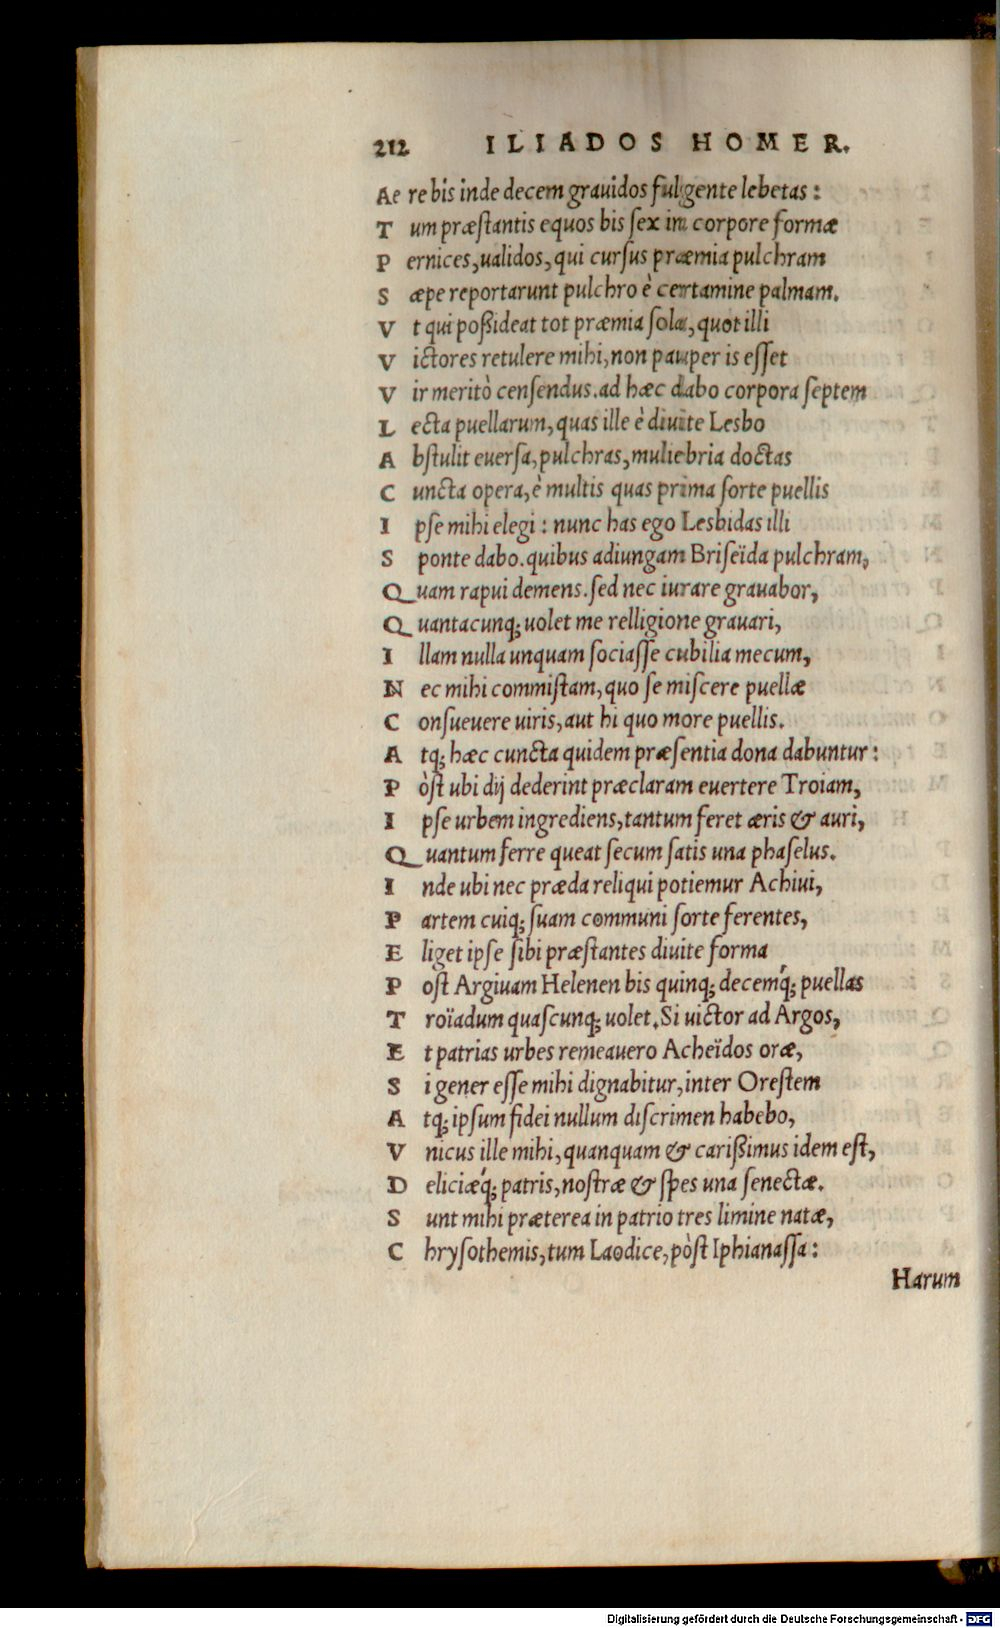 212 ILIADOS HOMER.
Aere bis inde decem grauidos fulgente lebetas :
Tum præstantis equos bis sex in corpore formæ
Pernices, ualidos, qui cursus præmia pulchram
Sæpe reportarunt pulchro è certamine palmam.
Vt qui poßideat tot præmia sola, quot illi
Victores retulere mihi, non pauper is esset
Vir meritò censendus. ad hæc dabo corpora septem
Lecta puellarum, quas ille è diuite Lesbo
Abstulit euersa, pulchras, muliebria doctas
Cuncta opera, è multis quas prima sorte puellis
Ipse mihi elegi : nunc has ego Lesbidas illi
Sponte dabo. quibus adiungam Briseïda pulchram,
Quam rapui demens. sed nec iurare grauabor,
Quantacunq; uolet me relligione grauari,
Illam nulla unquam sociasse cubilia mecum,
Nec mihi commistam, quo se miscere puellæ
Consueuere uiris, aut hi quo more puellis.
Atq; hæc cuncta quidem præsentia dona dabuntur :
Pòst ubi dij dederint præclaram euertere Troiam,
Ipse urbem ingrediens, tantum feret æris & auri,
Quantum ferre queat secum satis una phaselus.
Inde ubi nec præda reliqui potiemur Achiui,
Partem cuiq; suam communi sorte ferentes,
Eliget ipse sibi præstantes diuite forma
Post Argiuam Helenen bis quinq; decemq́; puellas
Troïadum quascunq; uolet. Si uictor ad Argos,
Et patrias urbes remeauero Acheïdos oræ,
Si gener esse mihi dignabitur, inter Orestem
Atq; ipsum fidei nullum discrimen habebo,
Vnicus ille mihi, quanquam & carißimus idem est,
Deliciæq́; patris, nostræ & spes una senectæ.
Sunt mihi præterea in patrio tres limine natæ,
Chrysothemis, tum Laodice, pòst Iphianassa :
Harum
Digitalisierung gefördert durch die Deutsche Forschungsgemeinschaft - DFG